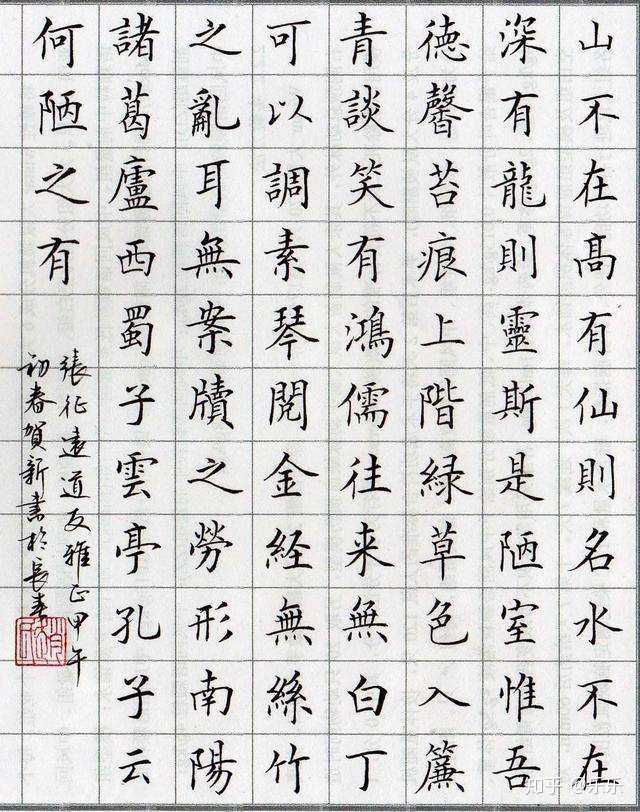 山不在髙有仙則名水不在
深有龍則靈斯是陋室惟吾
德馨苔痕上階緑草色入簾
青談笑有鴻儒往来無白丁
可以調素琴閱金経無絲竹
之亂耳無案牘之勞形南陽
諸葛廬西蜀子雲亭孔子云
何陋之有
張征遠道友雅正甲午
初春賀新書於長春
知乎 @乐乐